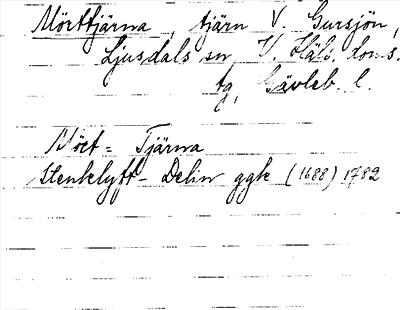 Mörttjärna, tjärn V. Gursjön,
Ljusdals sn V. Häls. doms.
tg, Gävleb. l.
Mört= Tjärna
Stenklyft- Delin ggk (1688) 1782